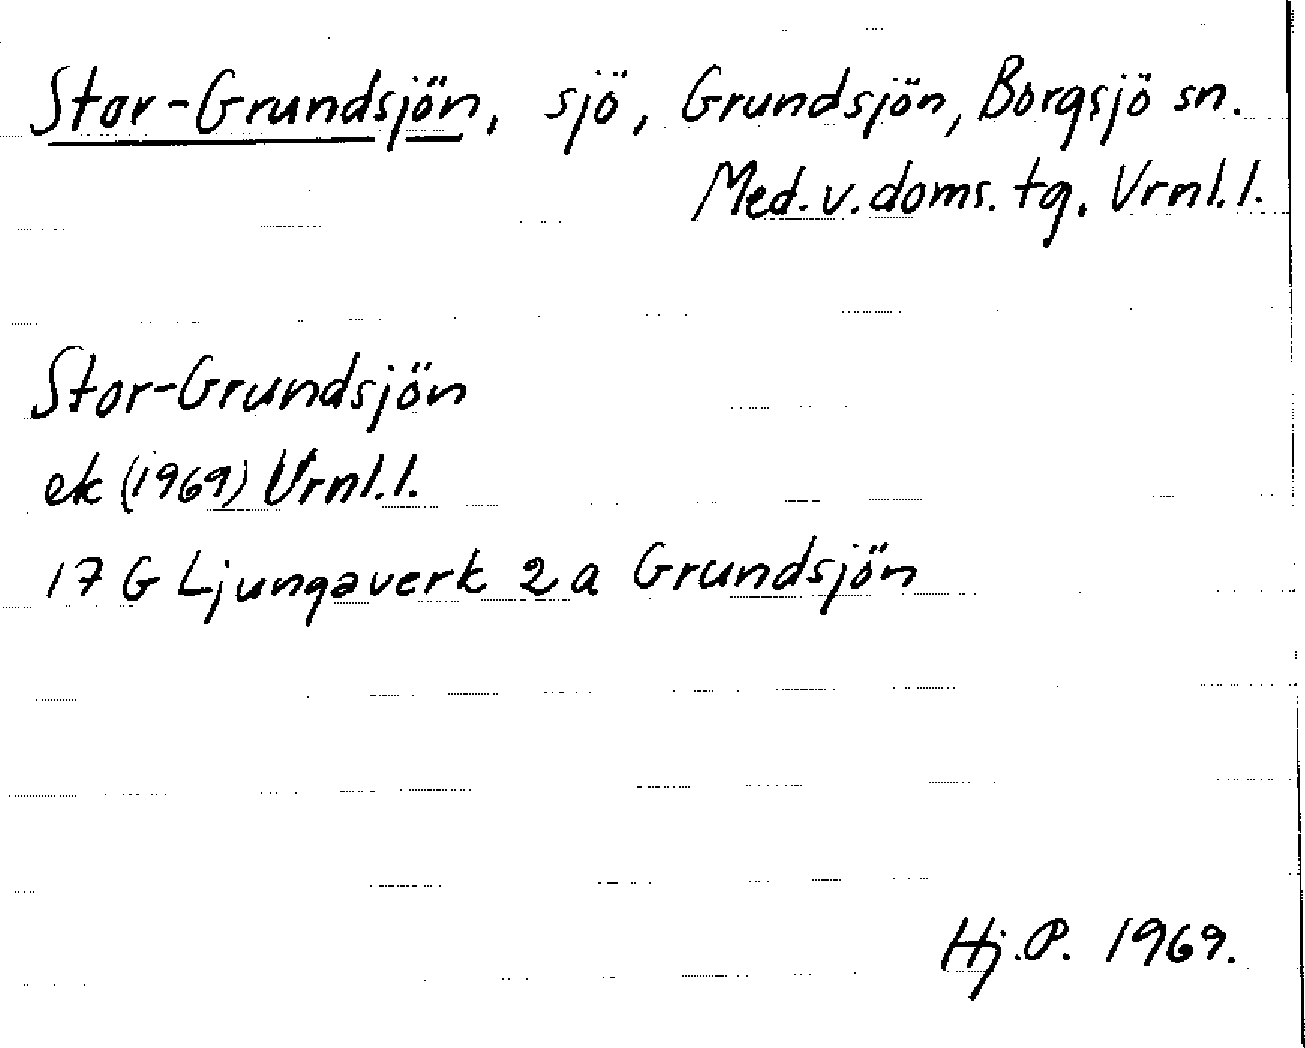 Stor-Grundsjön, sjö, Grundsjön, Borgsjö sn.
Med.v.doms.tg. Vrnl.l.
Stor-Grundsjön
ek (1969) Vrnl.l.
17 G Ljungaverk 2a Grundsjön
Hj.P. 1969.